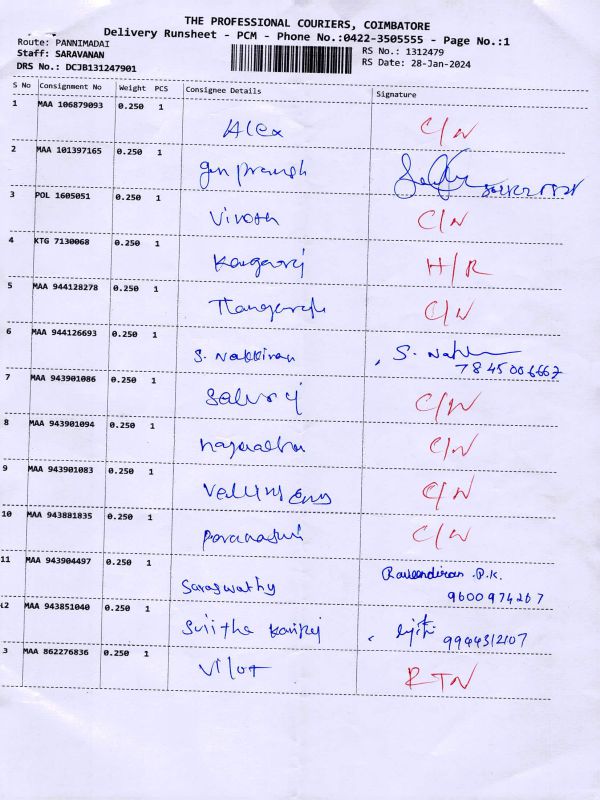 THE PROFESSIONAL COURIERS, COIMBATORE
Delivery Runsheet - PCM - Phone No.:0422-3505555 - Page No.:1
Route: PANNIMADAI
Staff: SARAVANAN
DRS No.: DCJB131247901
RS No.: 1312479
RS Date: 28-Jan-2024
S No Consignment No Weight PCS Consignee Details Signature
1 MAA 106879093 0.250 1 Alex C/N
2 MAA 101397165 0.250 1
3 POL 1605051 0.250 1 C/N
4 KTG 7130068 0.250 1 H/R
5 MAA 944128278 0.250 1 C/N
6 MAA 944126693 0.250 1 S. Nakkiran S.
7845006667
7 MAA 943901086 0.250 1 C/N
8 MAA 943901094 0.250 1 C/N
9 MAA 943901083 0.250 1 C/N
10 MAA 943881835 0.250 1 C/N
11 MAA 943904497 0.250 1 Saraswathy Raveendiran .P.K.
9600974267
12 MAA 943851040 0.250 1 9944312107
3 MAA 862276836 0.250 1 RTN